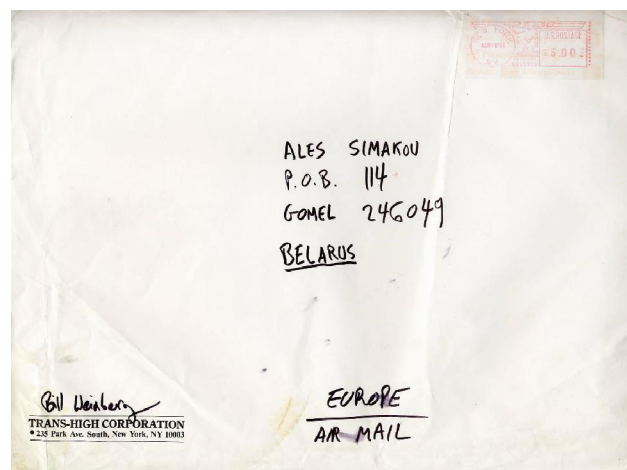 ALES SIMAKOU
P.O.B. 114
GOMEL 246049
BELARUS
Bill Weinberg
TRANS-HIGH CORPORATION
• 235 Park Ave. South, New York, NY 10003
EUROPE
AIR MAIL